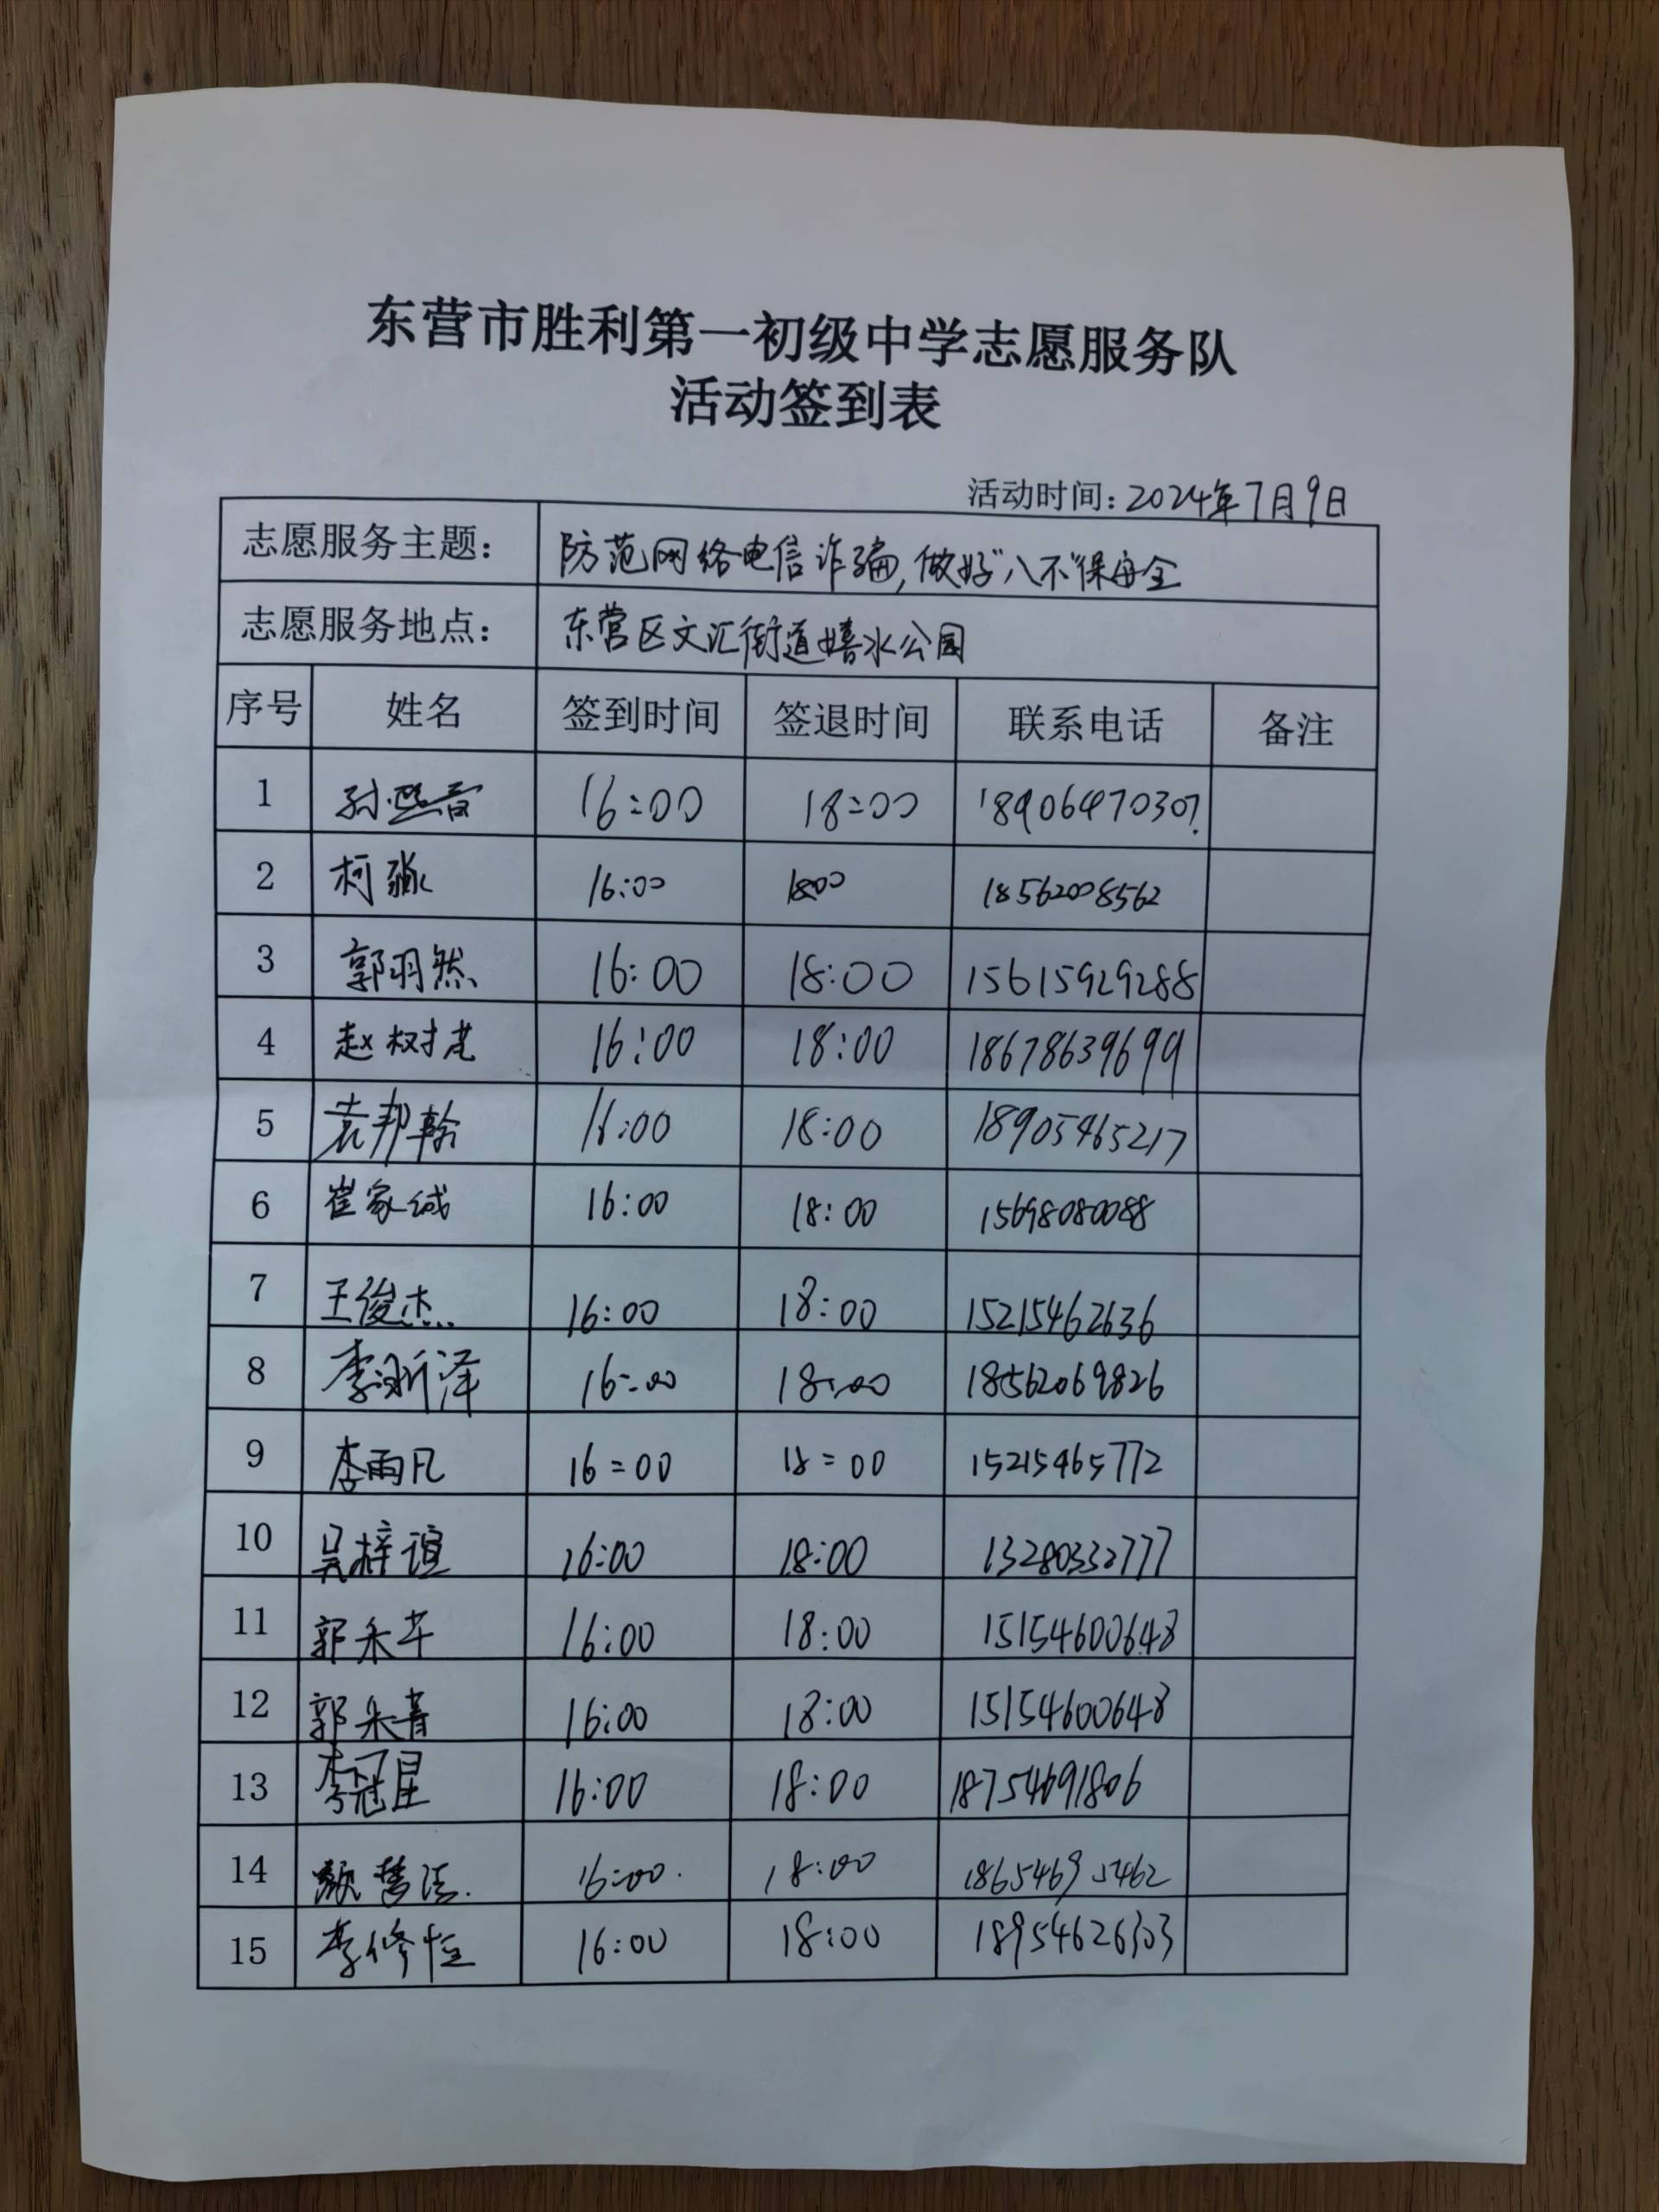 东营市胜利第一初级中学志愿服务队
活动签到表
活动时间：2024年7月9日
志愿服务主题： 防范网络电信诈骗,做好"八不"保安全
志愿服务地点： 东营区文汇街道嬉水公园
序号 姓名 签到时间 签退时间 联系电话 备注
1 16:00 18:00 18906470307
2 柯 16:00 18:00 18562008562
3 郭羽然 16:00 18:00 15615929288
4 赵树 16:00 18:00 18678639699
5 袁邦翰 16:00 18:00 18905465217
6 崔家诚 16:00 18:00 15698080088
7 王俊杰 16:00 18:00 15215462636
8 李沂泽 16:00 18:00 18562069826
9 李雨凡 16:00 18:00 15215465772
10 吴梓谊 16:00 18:00 13280332777
11 郭禾 16:00 18:00 15154600648
12 郭禾青 16:00 18:00 15154600648
13 李冠星 16:00 18:00 18754691806
14 颜 16:00 18:00 18654695462
15 李修恒 16:00 18:00 18954626303